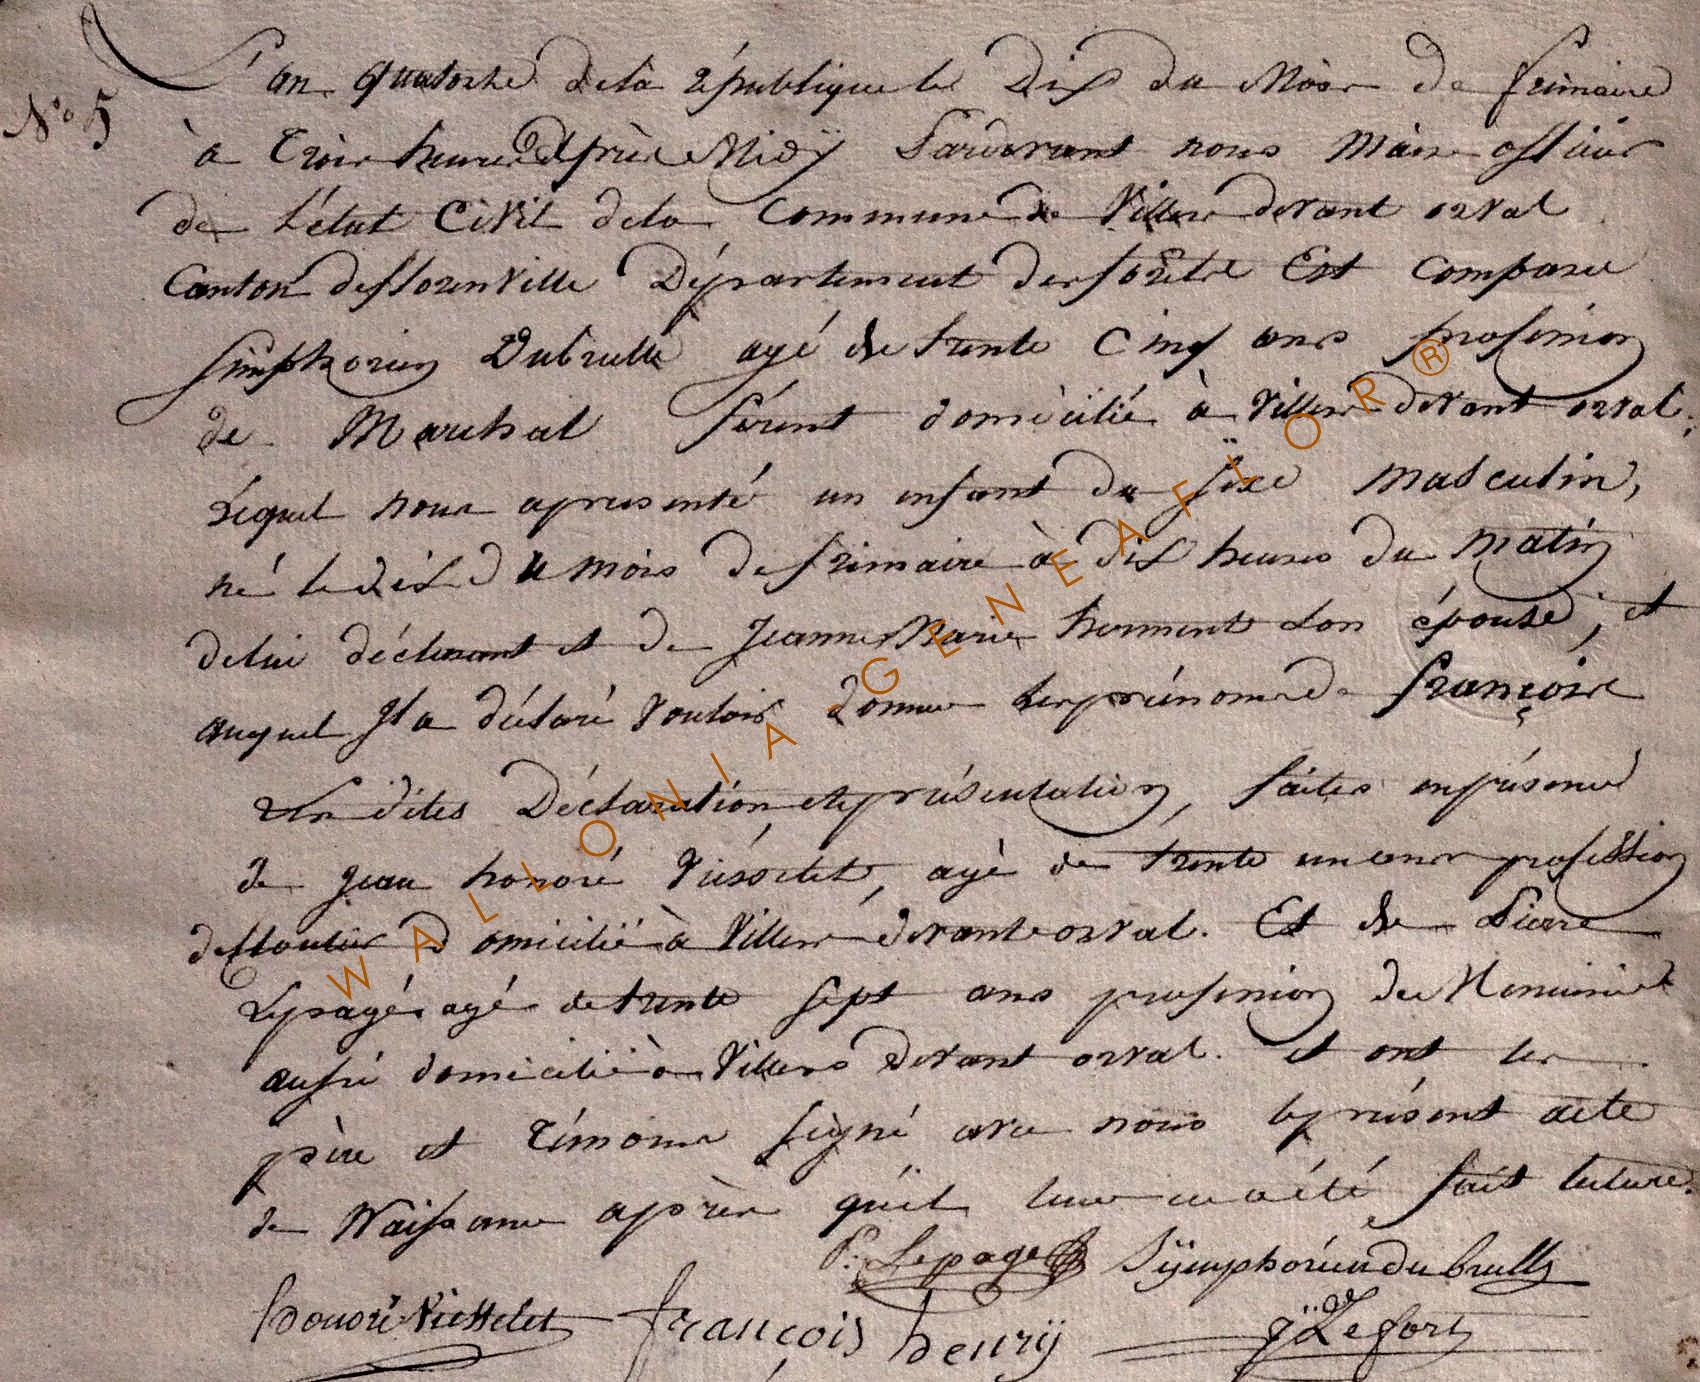 N° 5
L'an quatorze de la république le Dix du Mois De frimaire
à Trois heures d'après Midÿ Pardevant nous Maire officier
de L'état Civil de la Commune de Villers devant orval
Canton de florenville Département des forêts Est Comparu
simphorien Dubrulle agé de trente Cinq ans profession
de Marchal ferent domicilié à Villers devant orval,
Lequel nous apresenté un enfant du sexe masculin,
né le dix du mois de frimaire à dix heures du matin
de lui déclarant et de Jeanne Marie herment son épouse, et
auquel Il a déclaré Vouloir donner les prénoms de françois
Les dites Déclaration et présentation, faites en présence
de jean honoré agé de trente un ans profession
domicilié à Villers devant orval. Et de Pierre
Lepage agé de trente sept ans profession de
aussi domicilié à Villers devant orval. et ont les
père et Témoins signé avec nous le présent acte
de Naissance après qu'il leur en a été fait lecture.
P. Lepage Sÿmphorien du brulle
honoré françois henrÿ Lefort
WALLONIA GENEAFLOR ®